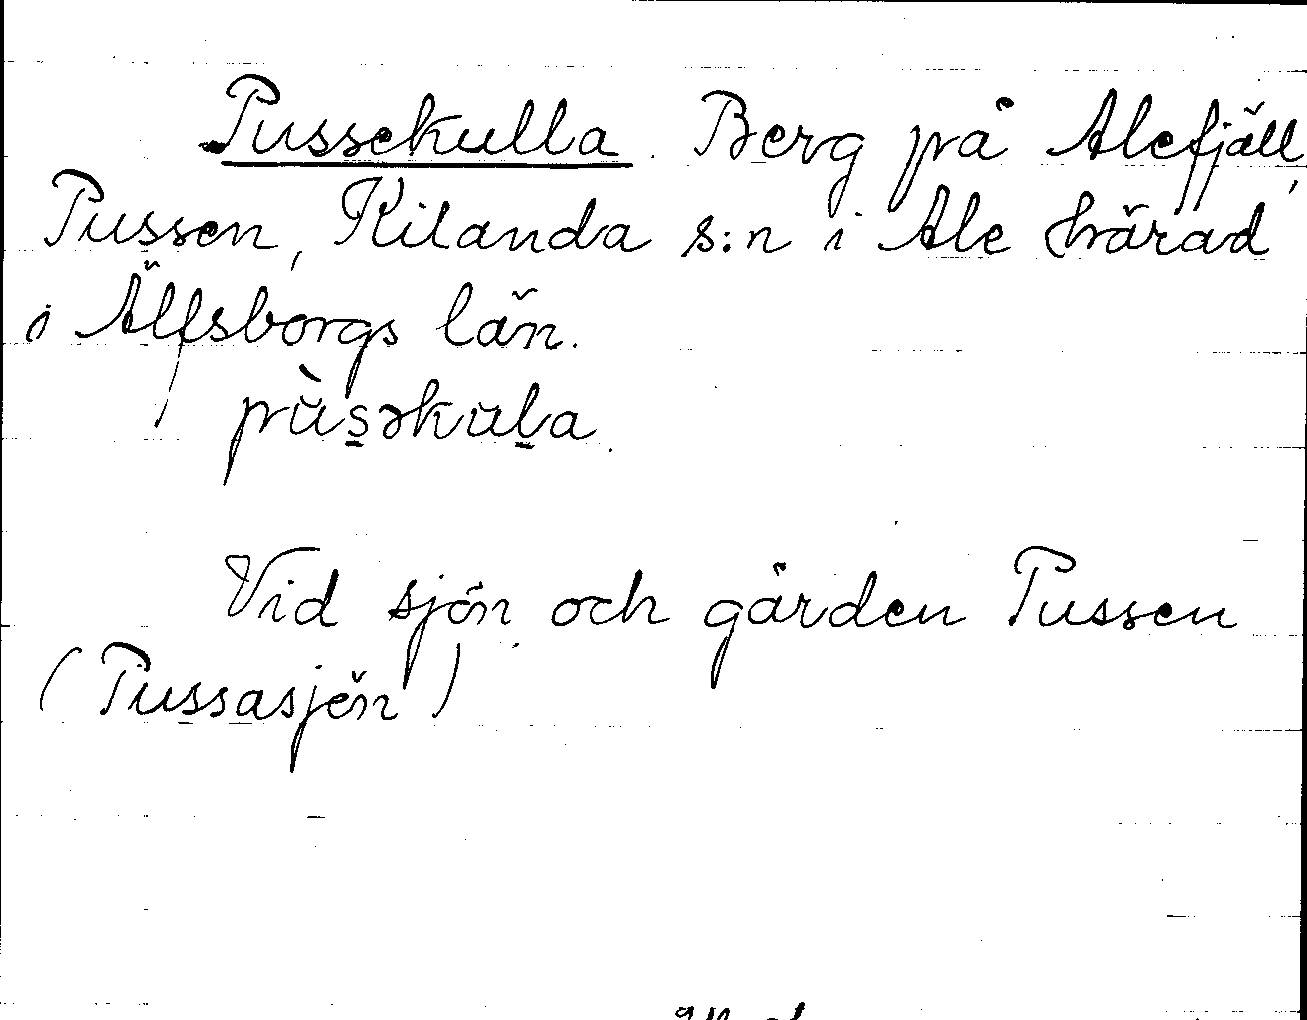 Pussekulla. Berg på Alefjäll,
Pussen, Kilanda s:n i Ale härad
i Älfsborgs län.
pùs̲əkul̲a.
Vid sjön och gården Pussen
(Pussasjön)